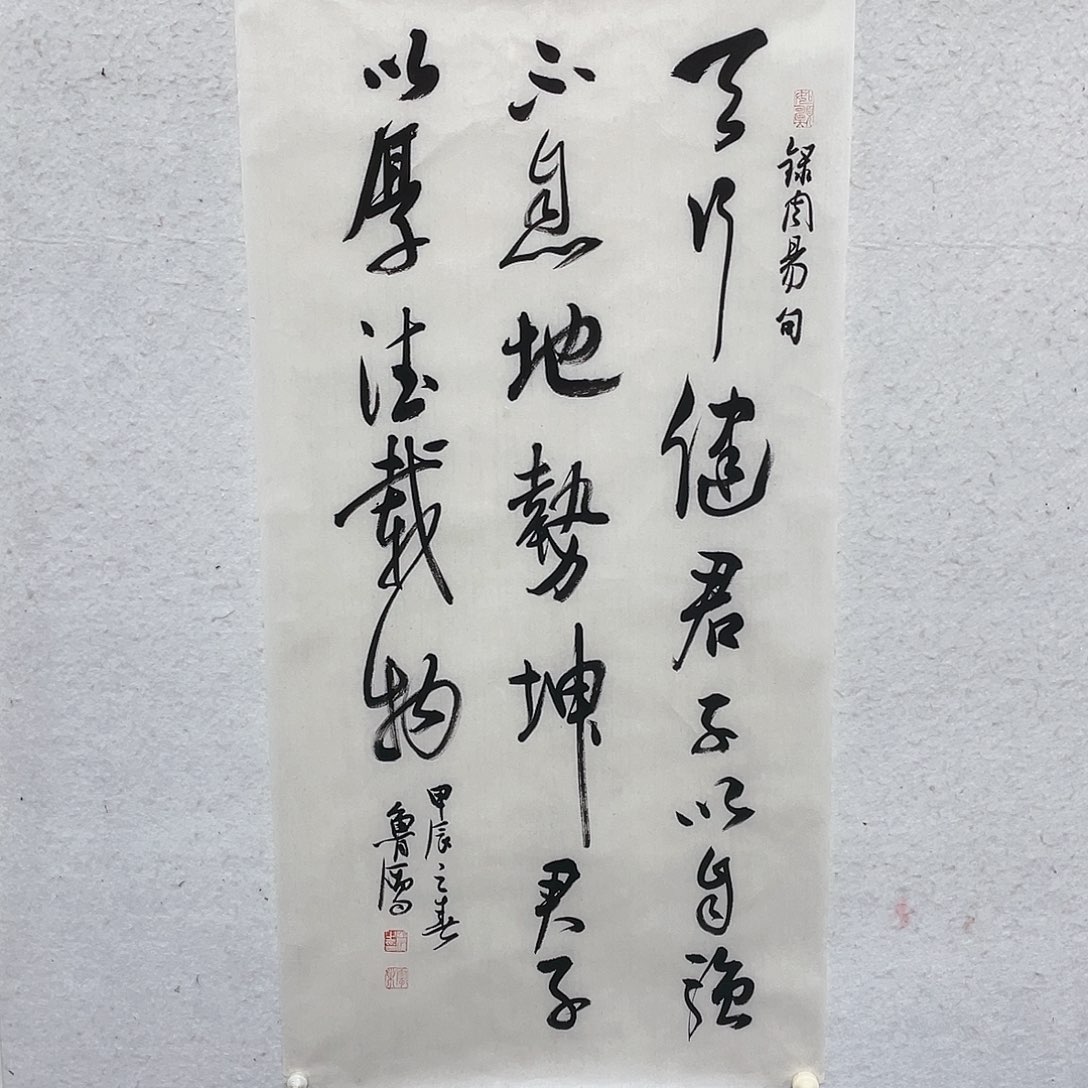 錄周易句
天行健君子以自強
不息地勢坤君子
以厚德載物
甲辰之春
魯